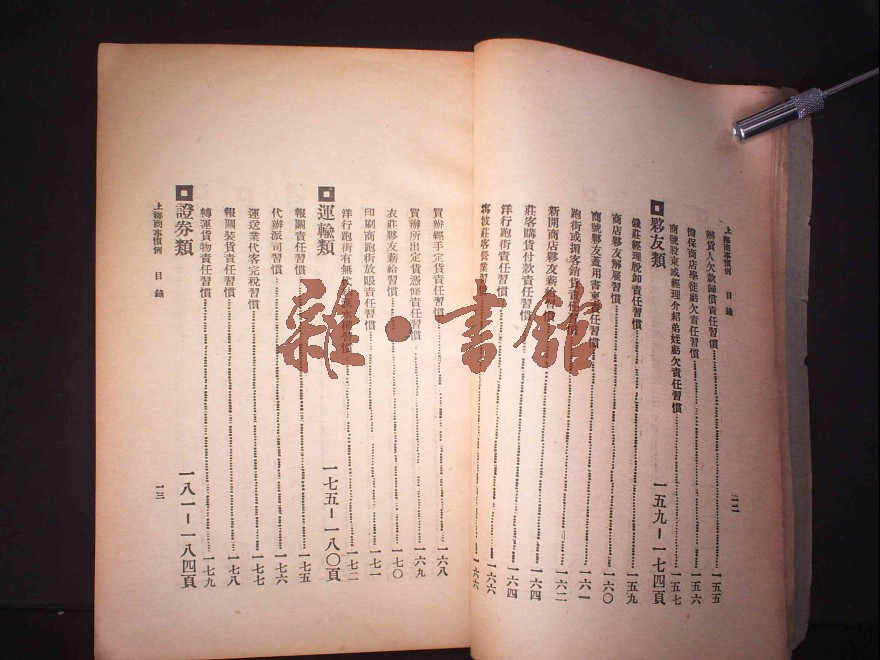 上海商事慣例　目錄　一二
辦貨人欠款歸償責任習慣 一五五
擔保商店學徒虧欠責任習慣 一五六
商號股東或經理介紹弟姪虧欠責任習慣 一五七
夥友類 一五九－一七四頁
錢莊經理脫卸責任習慣 一五九
商店夥友解雇習慣 一六〇
商號夥友蓋用書柬責任習慣 一六一
跑街或掮客銷貨責任習慣
新開商店夥友薪給習慣 一六二
莊客購貨付款責任習慣 一六四
洋行跑街責任習慣 一六四
莊客營業習 一六六
買辦經手定貨責任習慣 一六八
買辦所出定貨憑條責任習慣 一六九
衣莊夥友薪給習慣 一七〇
印刷商跑街放賬責任習慣 一七一
洋行跑街有無 習慣 一七二
運輸類 一七五－一八〇頁
報關責任習慣 一七五
代辦派司習慣 一七六
運送業代客完稅習慣 一七七
報關裝貨責任習慣 一七八
轉運貨物責任習慣 一七九
證券類 一八一－一八四頁
上海商事慣例　目錄　一三
雜·書館